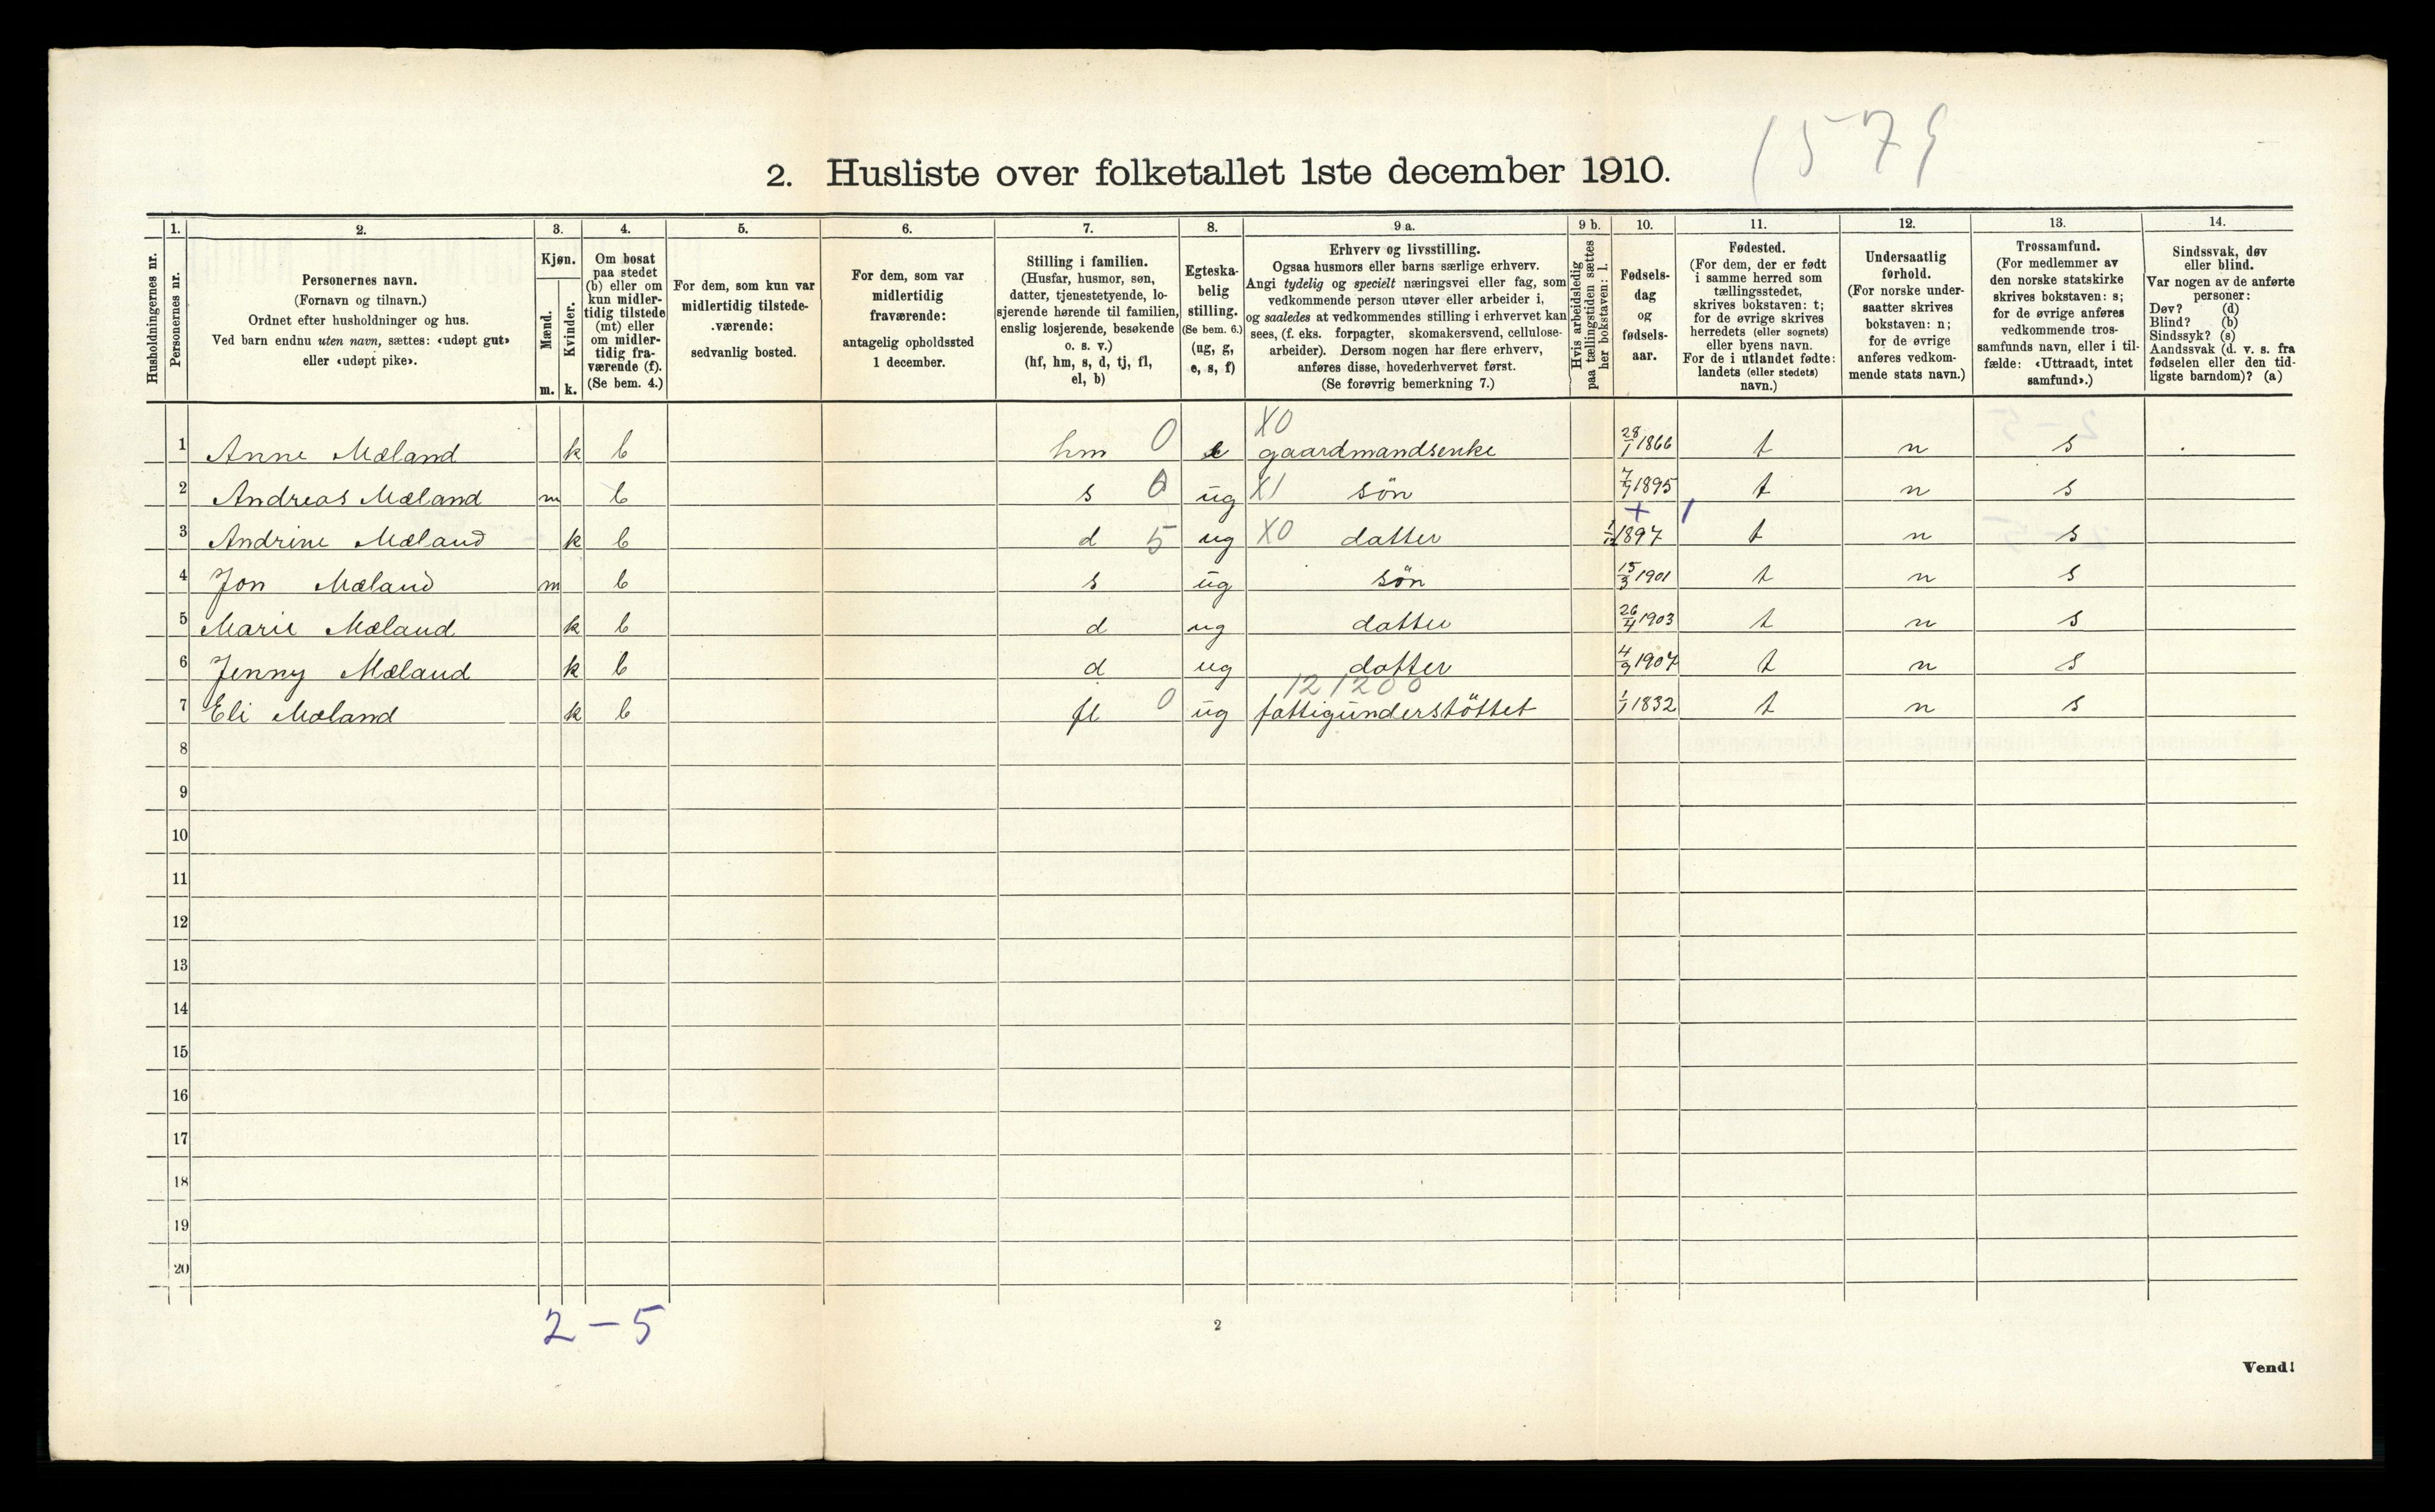 1579
2. Husliste over folketallet 1ste december 1910.
Husholdningernes nr.
1.
Personernes nr.
2.
Personernes navn.
(Fornavn og tilnavn.)
Ordnet efter husholdninger og hus.
Ved barn endnu uten navn, sættes: «udøpt gut»
eller «udøpt pike».
3.
Kjøn.
Mænd.
m.
Kvinder.
k.
4.
Om bosat
paa stedet
(b) eller om
kun midler-
tidig tilstede
(mt) eller
om midler-
tidig fra-
værende (f).
(Se bem. 4.)
5.
For dem, som kun var
midlertidig tilstede-
værende:
sedvanlig bosted.
6.
For dem, som var
midlertidig
fraværende:
antagelig opholdssted
1 december.
7.
Stilling i familien.
(Husfar, husmor, søn,
datter, tjenestetyende, lo-
sjerende hørende til familien,
enslig losjerende, besøkende
o. s. v.)
(hf, hm, s, d, tj, fl,
el, b)
8.
Egteska-
belig
stilling.
(Se bem. 6.)
(ug, g,
e, s, f)
9 a.
Erhverv og livsstilling.
Ogsaa husmors eller barns særlige erhverv.
Angi tydelig og specielt næringsvei eller fag, som
vedkommende person utøver eller arbeider i,
og saaledes at vedkommendes stilling i erhvervet kan
sees, (f. eks. forpagter, skomakersvend, cellulose-
arbeider). Dersom nogen har flere erhverv,
anføres disse, hovederhvervet først.
(Se forøvrig bemerkning 7.)
9 b.
Hvis arbeidsledig
paa tællingstiden sættes
her bokstaven: l.
10.
Fødsels-
dag
og
fødsels-
aar.
11.
Fødested.
(For dem, der er født
i samme herred som
tællingsstedet,
skrives bokstaven: t;
for de øvrige skrives
herredets (eller sognets)
eller byens navn.
For de i utlandet fødte:
landets (eller stedets)
navn.)
12.
Undersaatlig
forhold.
(For norske under-
saatter skrives
bokstaven: n;
for de øvrige
anføres vedkom-
mende stats navn.)
13.
Trossamfund.
(For medlemmer av
den norske statskirke
skrives bokstaven: s;
for de øvrige anføres
vedkommende tros-
samfunds navn, eller i til-
fælde: «Uttraadt, intet
samfund».)
14.
Sindssvak, døv
eller blind.
Var nogen av de anførte
personer:
Døv? (d)
Blind? (b)
Sindssyk? (s)
Aandssvak (d. v. s. fra
fødselen eller den tid-
ligste barndom)? (a)
X0
1 Anne Mæland k b hm 0 e gaardmandsenke 28/1 1866 t n s
2 Andreas Mæland m b s 0 ug X1 søn 7/7 1895 t n s
3 Andrine Mæland k b d 5 ug X0 datter 1/12 1897 t n s
4 Jon Mæland m b s ug søn 15/3 1901 t n s
5 Marie Mæland k b d ug datter 26/4 1903 t n s
6 Jenny Mæland k b d ug datter 4/9 1907 t n s
121200
7 Eli Mæland k b fl 0 ug fattigunderstöttet 1/1 1832 t n s
8
9
10
11
12
13
14
15
16
17
18
19
20
2 – 5
2
Vend!